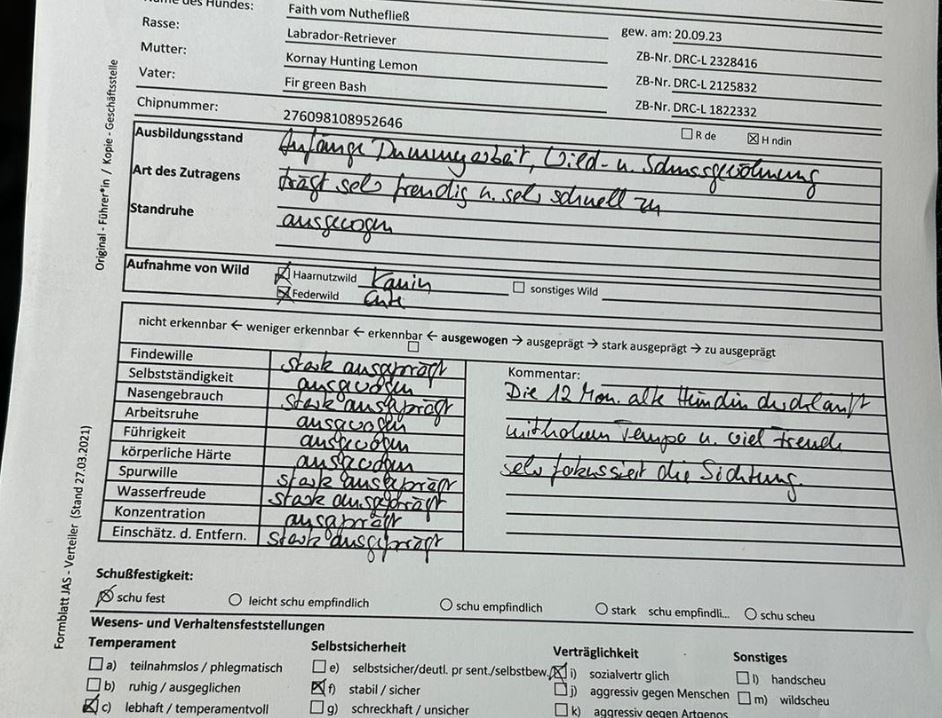 Name des Hundes: Faith vom Nuthefließ gew. am: 20.09.23
Rasse: Labrador-Retriever ZB-Nr. DRC-L 2328416
Mutter: Kornay Hunting Lemon ZB-Nr. DRC-L 2125832
Vater: Fir green Bash ZB-Nr. DRC-L 1822332
Chipnummer: 276098108952646 R de H ndin
Ausbildungsstand Anfänge Dummyarbeit, Wild- u. Schussgewöhnung
Art des Zutragens trägt sehr freudig u. sehr schnell zu
Standruhe ausgewogen
Aufnahme von Wild Haarnutzwild Kanin sonstiges Wild
Federwild Ente
nicht erkennbar ← weniger erkennbar ← erkennbar ← ausgewogen → ausgeprägt → stark ausgeprägt → zu ausgeprägt
Findewille stark ausgeprägt
Selbstständigkeit ausgewogen
Nasengebrauch stark ausgeprägt
Arbeitsruhe ausgewogen
Führigkeit ausgewogen
körperliche Härte ausgewogen
Spurwille stark ausgeprägt
Wasserfreude stark ausgeprägt
Konzentration ausgeprägt
Einschätz. d. Entfern. stark ausgeprägt
Kommentar:
Die 12 Mon. alte Hündin durchläuft
mit hohem Tempo u. viel Freude
sehr fokussiert die Sichtung.
Schußfestigkeit:
schu fest leicht schu empfindlich schu empfindlich stark schu empfindli... schu scheu
Wesens- und Verhaltensfeststellungen
Temperament Selbstsicherheit Verträglichkeit Sonstiges
a) teilnahmslos / phlegmatisch e) selbstsicher/deutl. pr sent./selbstbew. i) sozialvertr glich l) handscheu
b) ruhig / ausgeglichen f) stabil / sicher j) aggressiv gegen Menschen m) wildscheu
c) lebhaft / temperamentvoll g) schreckhaft / unsicher k) aggressiv gegen Artgenos
Original - Führer*in / Kopie - Geschäftsstelle
Formblatt JAS - Verteiler (Stand 27.03.2021)